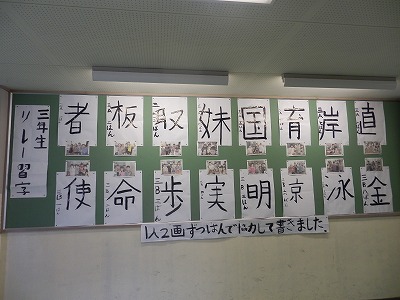 三年生
リレー習字
者 板 取 妹 国 育 岸 直
使 命 歩 実 明 京 泳 金
1人2画ずつはんで協力して書きました。